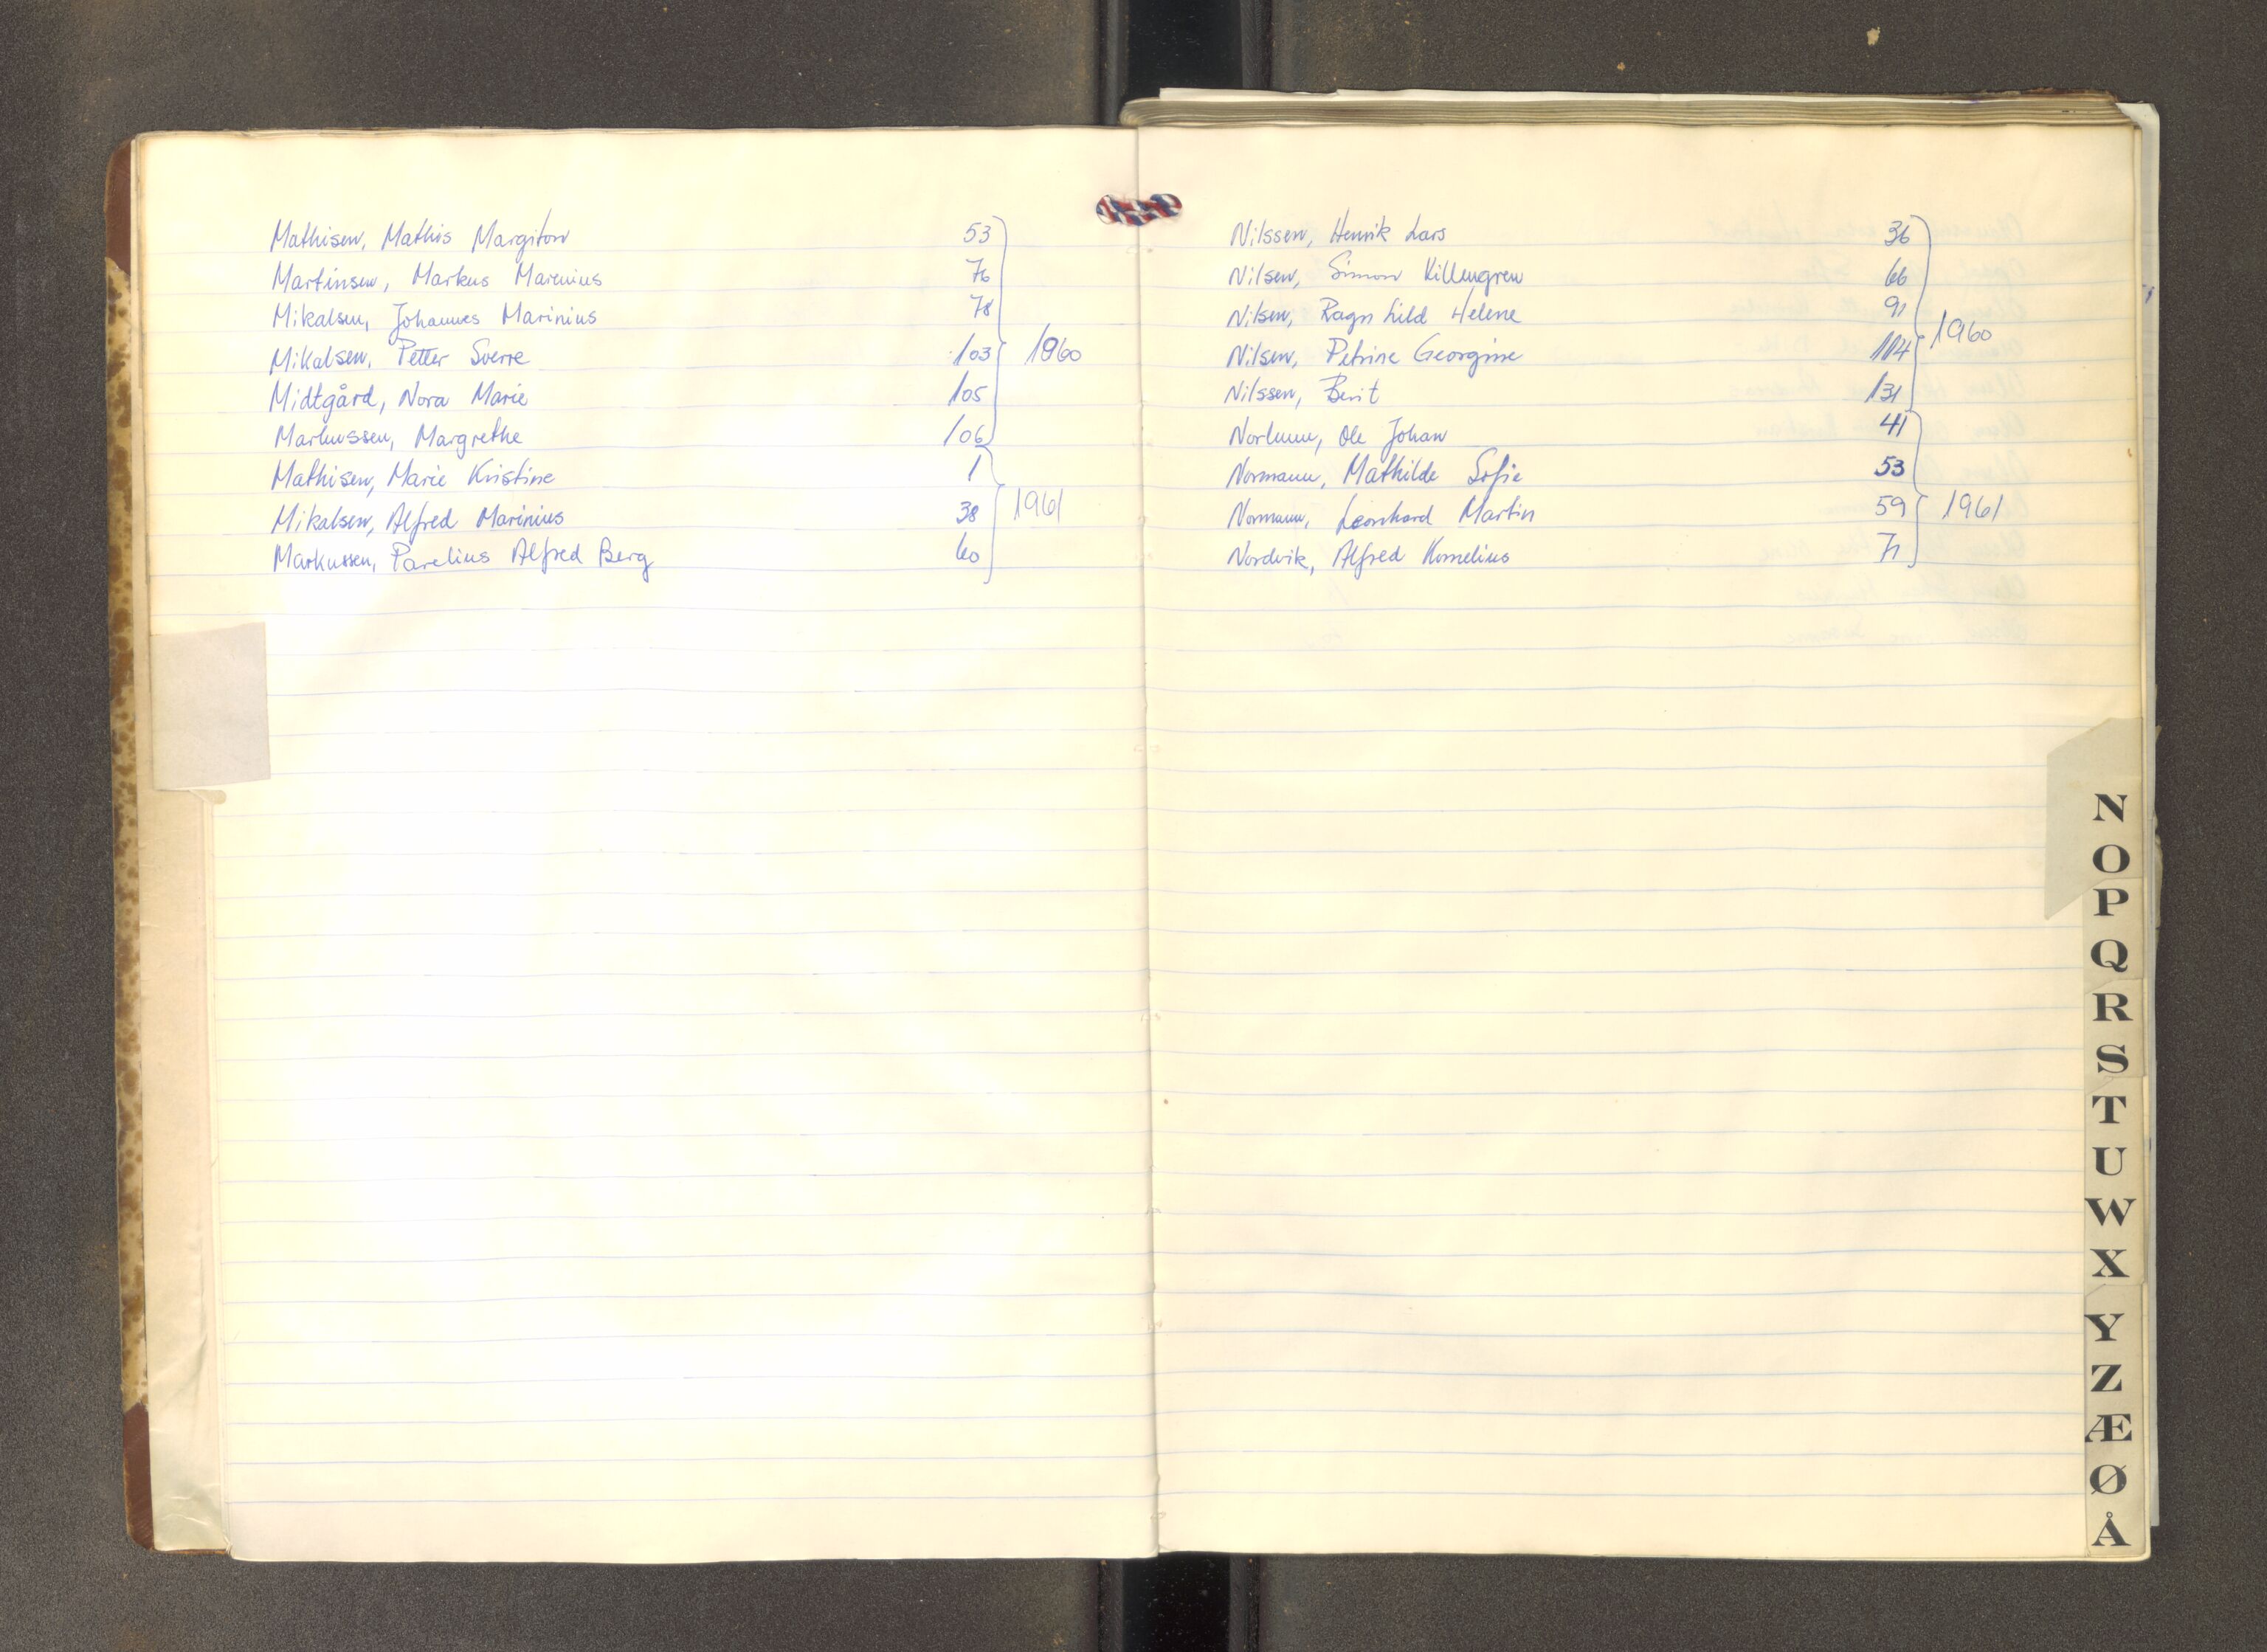 Mathisen, Mathis Margiton 53
Martinsen, Markus Marenius 76
Mikalsen, Johannes Marinius 78
Mikalsen, Petter Sverre 103
1960
Midtgård, Nora Marie 105
Markussen, Margrethe 106
Mathisen, Marie Kristine 1
Mikalsen, Alfred Marinius 38
1961
Markussen, Parelius Alfred Berg 60
Nilssen, Henrik Lars 36
Nilsen, Simon Killengren 66
Nilsen, Ragnhild Helene 91
1960
Nilsen, Petrine Georgine 114
Nilssen, Berit 131
Ole Johan 41
Normann, Mathilde Sofie 53
Normann, Leonhard Martin 59
1961
Nordvik, Alfred Kornelius 71
N
O
P
Q
R
S
T
U
W
X
Y
Z
Æ
Ø
Å